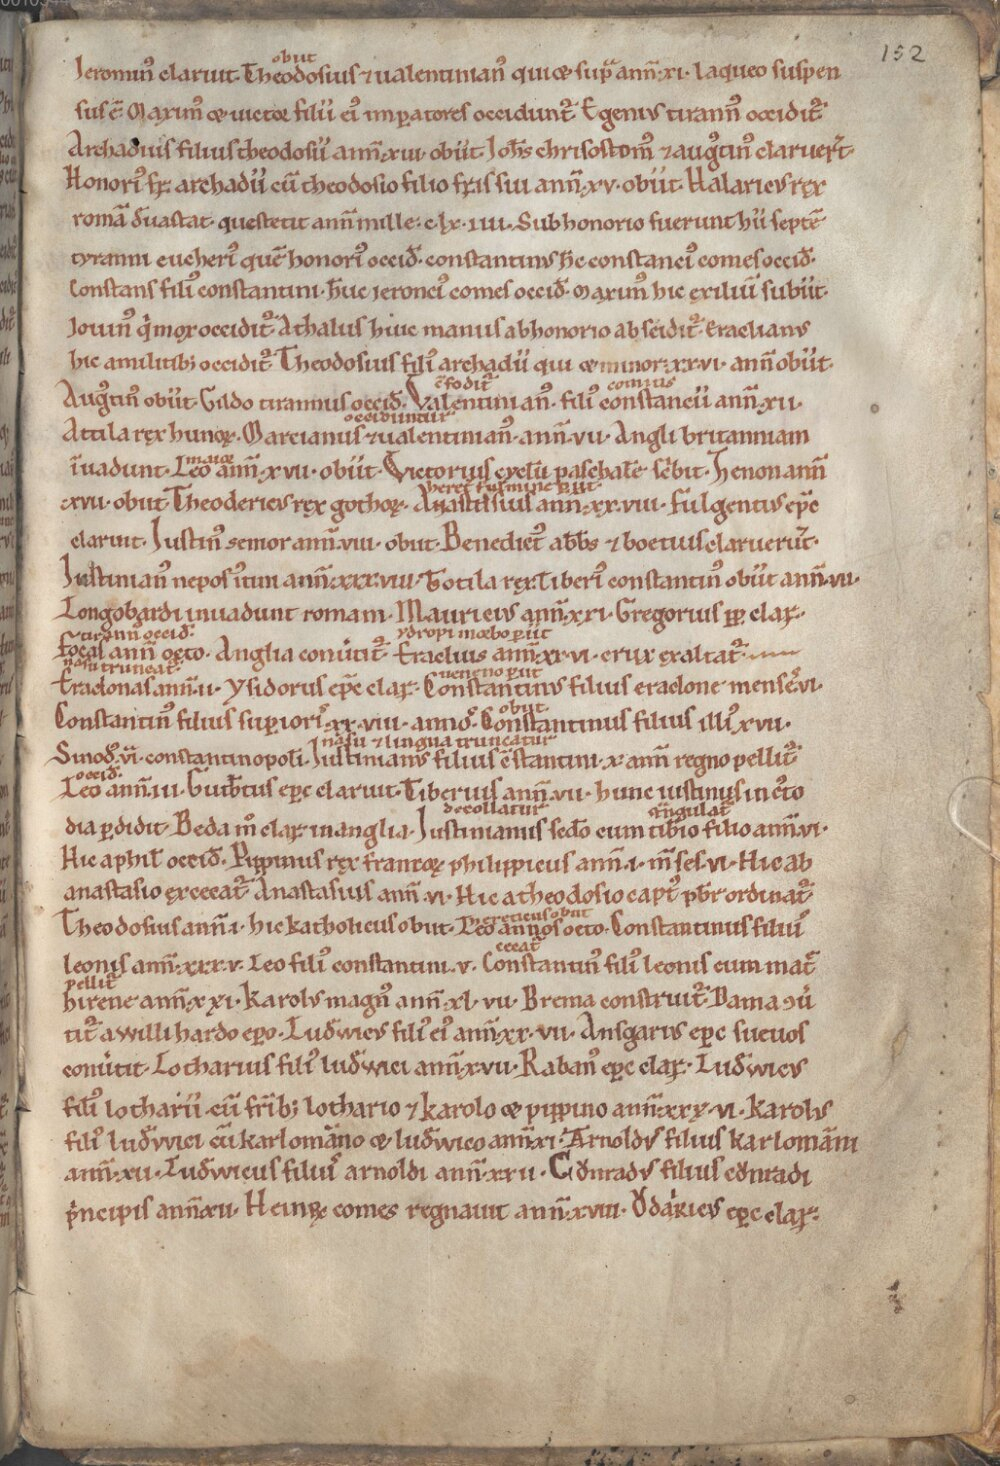 152
obiit
Ieronim᷒ claruit · Theodosius ⁊ ualentinian᷒ qui ⁊ sup̄ ann̄ · xi · laqueo suspen
sus ē · Maxim᷒ ⁊ uictor filii ei᷒ imperatores occidunt᷑ · Egenius tirann᷒ occidit᷑
Archadius filius theodosii ann̄ · xiii · obiit · Ioh̄s chrisostom᷒ ⁊ aug᷒tin᷒ claruer̄t ·
Honori᷒ fr̄ archadii cū theodosio filio fr̄is sui ann̄ · xv · obiit · Halaricus rex
romā deuastat · que stetit ann̄ mille · c · lx · iiii · Sub honorio fuerunt hii septē
tyranni eucheri᷒ quē honori᷒ occid̄ · constantinus hc̄ constanci᷒ comes occid̄ ·
Constans fili᷒ constantini · hc̄ ieronci᷒ comes occid̄ · Maxim᷒ hic exiliū subiit ·
Iouin᷒ q̄ mox occidit᷑ Athalus huic manus ab honorio abscidit᷑ Eraclianus
hic a militib; occidit᷑ Theodosius fili᷒ archadii qui ⁊ minor · xx · vi · ann̄ obiit ·
ēfodit᷑ comitis
Aug᷒tin᷒ obiit · Gildo tirannus occid̄ · Valentinian᷒ · fili᷒ constancii ann̄ · xii ·
occiduntur
Attila rex hunoꝝ · Marcianus ⁊ ualentinian᷒ · ann̄ · vii · Angli britanniam
maior
īuadunt · Leo ann̄ · xvii · obiit · Victorius cyclū paschalē sc̄bit · Henon ann̄
heret fulmine ꝑiit
xvii · obiit Theodericus rex gothoꝝ · Anastasius ann̄ · xx · viii · Fulgentius ep̄c
claruit · Iustin᷒ senior ann̄ · viii · obiit · Benedict᷒ abb̄s ⁊ boetius claruer̄t ·
Iustinian᷒ nepos iustini ann̄ · xxx · viii · Totila rex · Tiberi᷒ constantin᷒ obiit ann̄ · vii ·
Longobardi inuadunt romam · Mauricius ann̄ · xxi · Gregorius pp̄ clar̄ ·
tirann᷒ occid̄ · ydropi morbo ꝑiit
Focas ann̄ octo · Anglia conūtit᷑ · Eraclius ann̄ · xx · vi · crux exaltat᷑ ·
naso truncat᷑ · ueneno ꝑiit
Eraclonas ann̄ · ii · Ysidorus ep̄c clar̄ · Constantinus filius eraclone mense᷒ vi ·
obiit
Constantin᷒ filius superiori᷒ · xx · viii · anno᷒ · Constantinus filius illi᷒ xvii ·
nasu ⁊ lingua truncatur
Sinod᷒ · vi · constantinopoli · Iustinianus filius cōstantini · x · ann̄ regno pellit᷑
occid̄ ·
Leo ann̄ · iii · Guibtus ep̄c claruit · Tiberius ann̄ · vii · hunc iustinus in c̄to
decollatur strāgulat᷑
dia ꝑdidit · Beda m̄ clar̄ in anglia · Iustinianus sc̄do cum tib̄io filio ann̄ · vi ·
Hic a phil̄ occid̄ · Pippinus rex francoꝝ · philippicus ann̄ · i · m̄ses · vi · Hic ab
anastasio excecat᷑ · Anastasius ann̄ · vi · Hic a theodosio capt᷒ pb̄r ordinat᷑ ·
hereticus obiit
Theodosius ann̄ · i · hic katholicus obiit · Leo annos octo · Constantinus filius
cecat᷑
leonis ann̄ · xxx · v · Leo fili᷒ constantini · v · Constantin᷒ fili᷒ leonis cum mat̄
pellit᷑
hirene ann̄ · xxi · Karolus magn᷒ ann̄ · xl · vii · Brema construit᷑ · Dania ꝯū
tit᷑ a willihardo ep̄o · Ludwicus fili᷒ ei᷒ ann̄ · xx · vii · Ansgarius ep̄c sueuos
conūtit · Lotharius fili᷒ ludwici ann̄ · xvii · Raban᷒ ep̄c clar̄ · Ludwicus
fili᷒ lotharii · cū frīb; lothario ⁊ karolo ⁊ pippino ann̄ · xxx · vi · Karolus
fili᷒ ludwici cū karlomanno ⁊ ludwico ann̄ · xi · Arnoldus filius karlomanni
ann̄ · xii · Ludwicus filius arnoldi ann̄ · xx ii · Cōnradus filius cōnradi
p̄ncipis ann̄ · xii · Heinr̄ comes regnauit ann̄ · xviii · Vdalricus ep̄c clar̄ ·